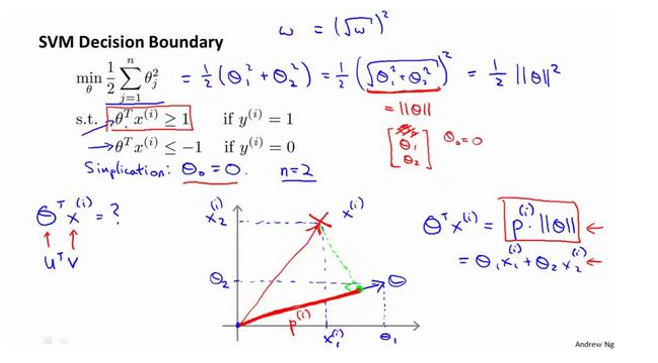 ω = (√ω)²
SVM Decision Boundary
min_θ 1/2 Σ_{j=1}^{n} θ_j² = 1/2 (θ₁² + θ₂²) = 1/2 (√(θ₁² + θ₂²))² = 1/2 ||θ||²
= ||θ||
s.t. θᵀx⁽ⁱ⁾ ≥ 1 if y⁽ⁱ⁾ = 1
θᵀx⁽ⁱ⁾ ≤ −1 if y⁽ⁱ⁾ = 0
[θ₁ θ₂] θ₀=0
Simplication: θ₀ = 0. n=2
θᵀx⁽ⁱ⁾ = ?
uᵀv
x₂⁽ⁱ⁾
x⁽ⁱ⁾
θ₂
θ
p⁽ⁱ⁾
x₁⁽ⁱ⁾
θ₁
θᵀx⁽ⁱ⁾ = p⁽ⁱ⁾ · ||θ|| ←
= θ₁x₁⁽ⁱ⁾ + θ₂x₂⁽ⁱ⁾ ←
Andrew Ng